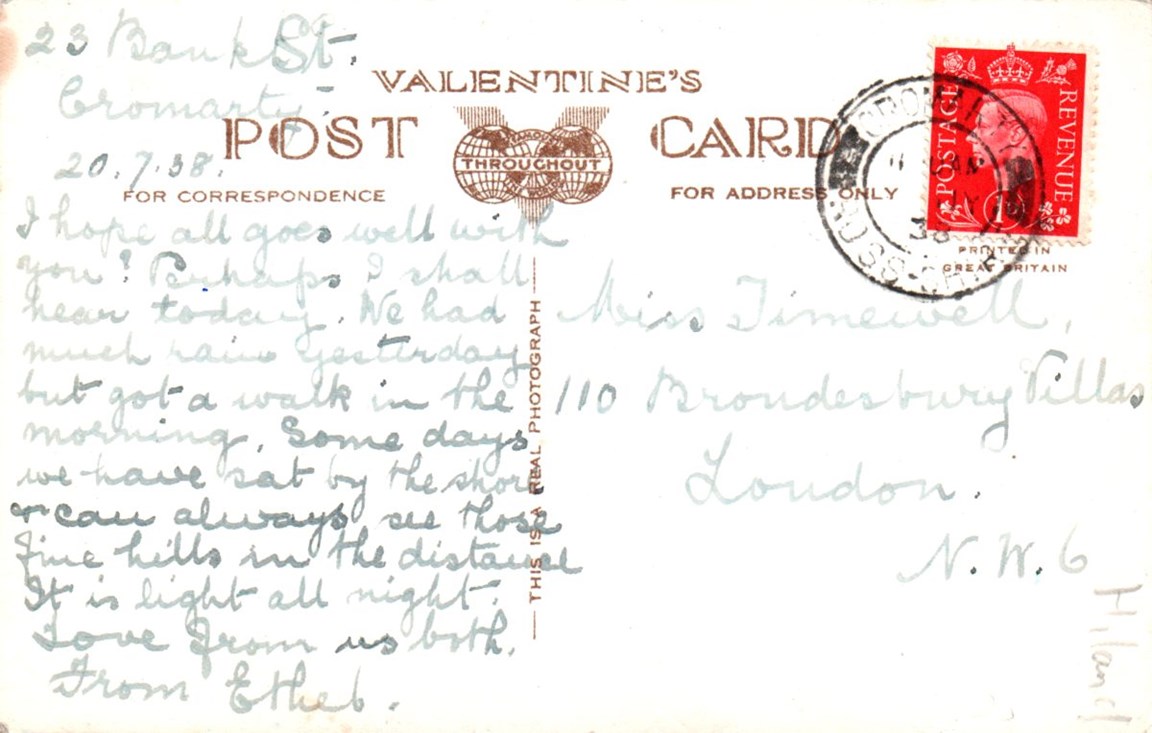 23 Bank St.
Cromarty.
20.7.38.
VALENTINE'S
POST CARD
THROUGHOUT
FOR CORRESPONDENCE
FOR ADDRESS ONLY
I hope all goes well with
you? Perhaps I shall
hear today. We had
much rain yesterday
but got a walk in the
morning. Some days
we have sat by the shore
& can always see those
fine hills in the distance
It is light all night.
Love from us both.
From Ethel.
THIS IS A REAL PHOTOGRAPH
POSTAGE
REVENUE
1D
CROMARTY
38
ROSS-SHIRE
PRINTED IN
GREAT BRITAIN
Miss Timewell,
110 Brondesbury Villas
London.
N.W.6